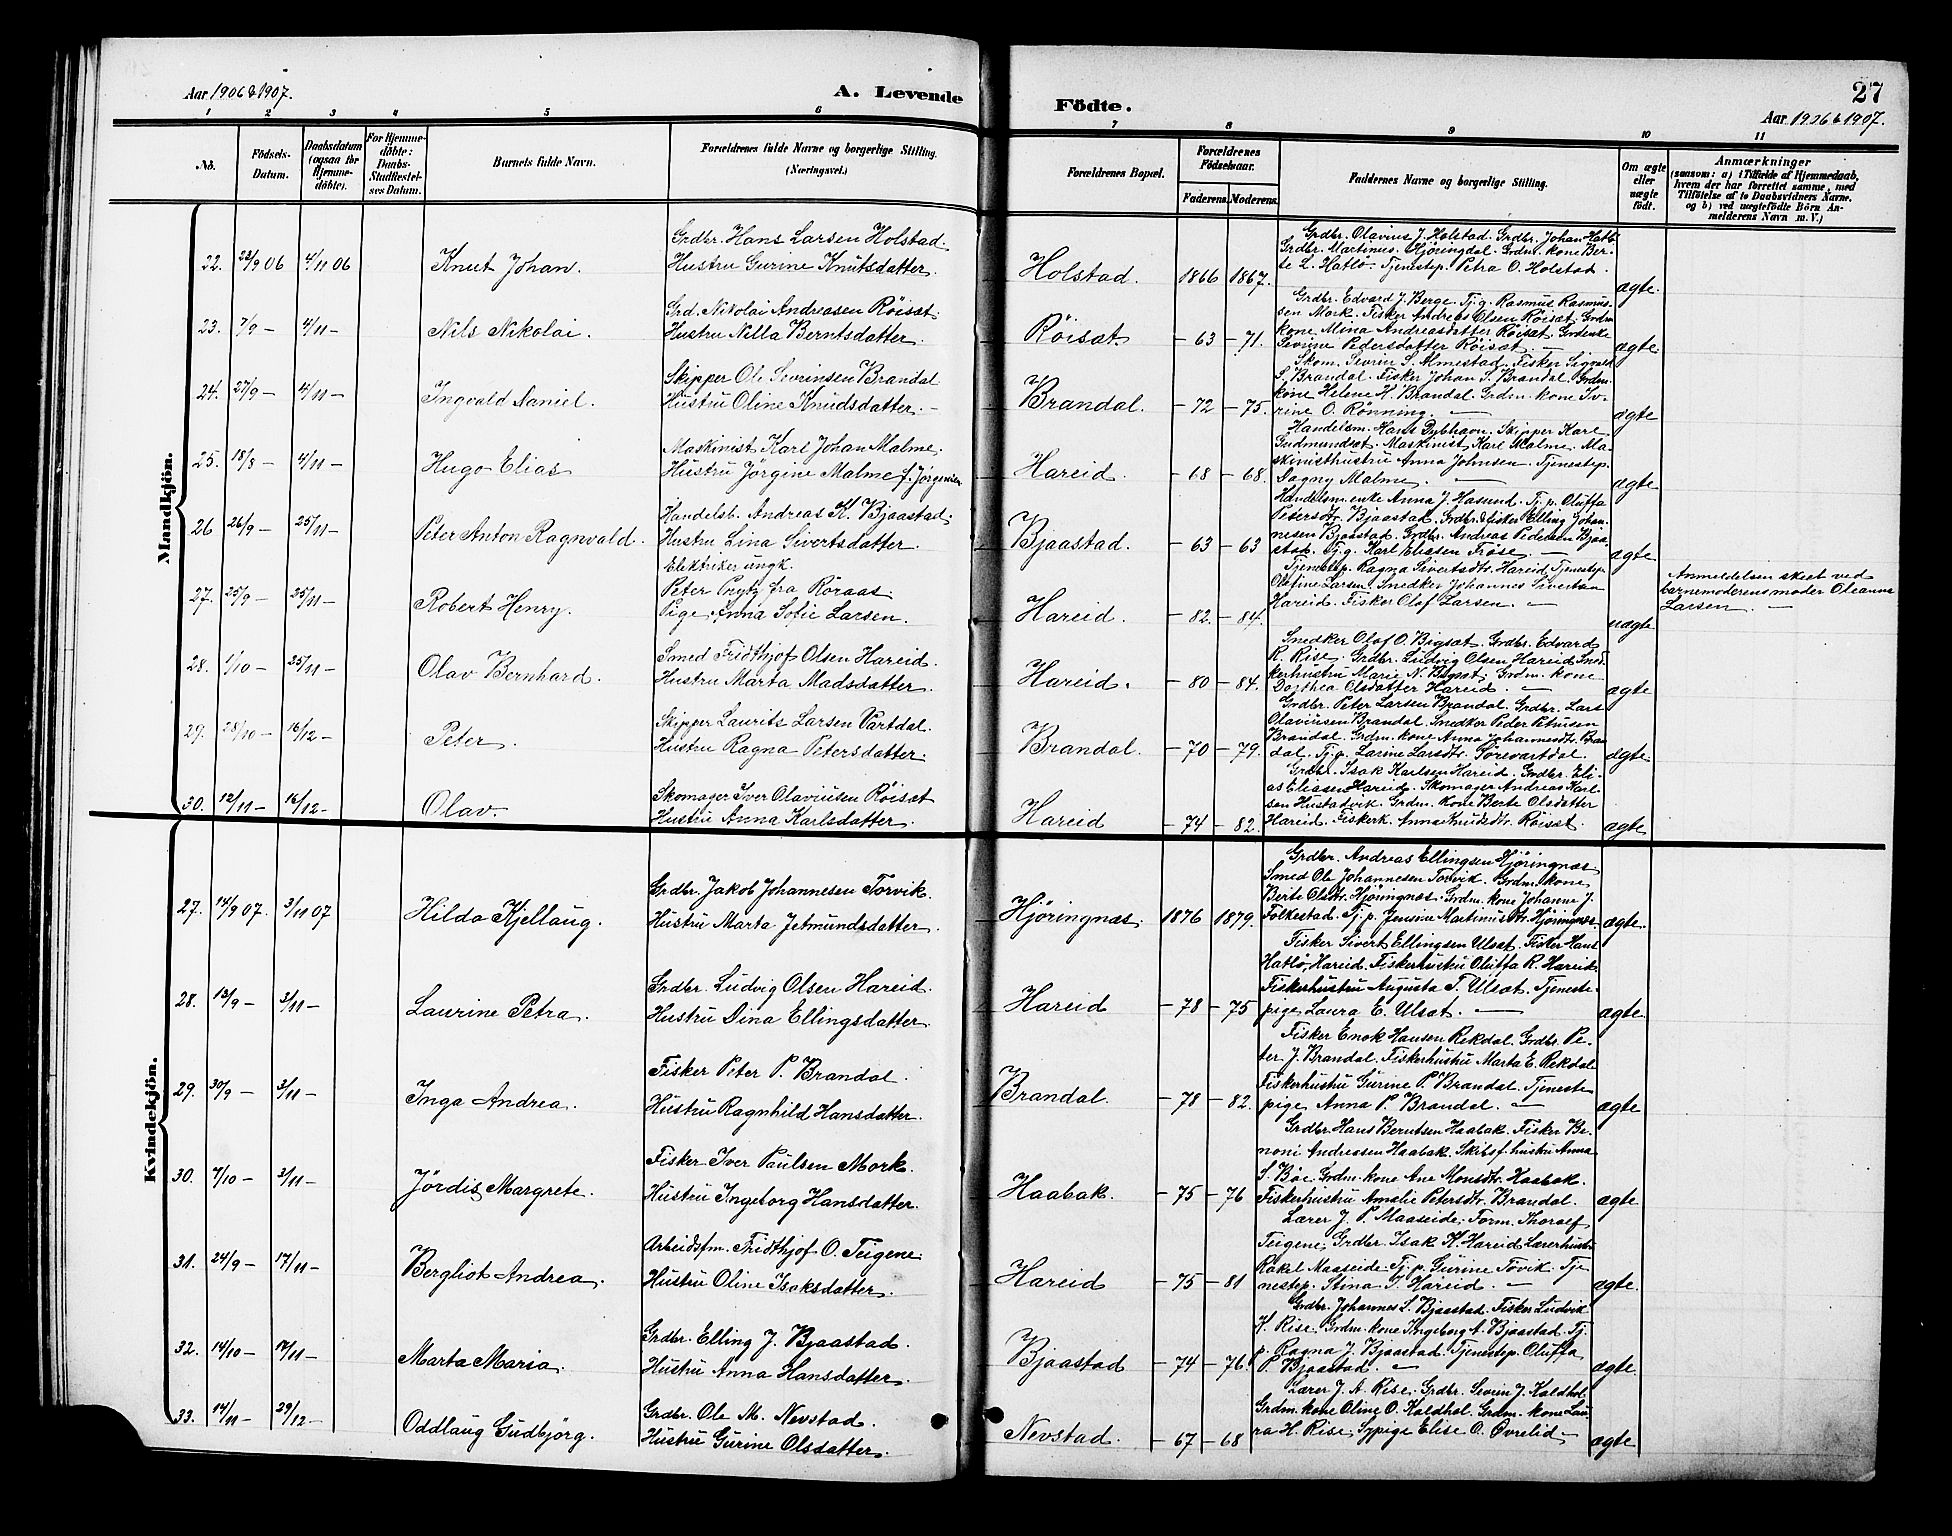 Aar 1906 & 1907.
A. Levende
Födte.
27
Aar 1906 & 1907.
1 2 3 4 5 6 7 8 9 10 11
No.
Födsels-Datum.
Daabsdatum (ogsaa for Hjemme-döbte).
For Hjemme-döbte: Daabs-Stadfæstel-ses Datum.
Barnets fulde Navn.
Forældrenes fulde Navne og borgerlige Stilling.
(Næringsvei.)
Forældrenes Bopæl.
Forældrenes Födselsaar.
Faderens. Moderens.
Faddernes Navne og borgerlige Stilling.
Om ægte eller uægte født.
Anmærkninger
(saasom: a) i Tilfælde af Hjemmedaab, hvem der har forrettet samme, med Tilföielse af to Daabsvidners Navne, og b) ved uægtefödte Börn An-melderens Navn m. V.)
Mandkjön.
22. 22/9 06 4/11 06 Knut Johan.
Grdbr. Hans Larsen Holstad.
Hustru Gurine Knutsdatter.
Holstad. 1866 1867.
Grdbr. Olavius J. Holstad. Grdbr. Johan Hatl.
Grdbr. Martinus Hjöringdal. Grdm. kone Ber-
te L. Hatlö. Tjenestep. Petra O. Holstad.
ægte.
23. 7/9 - 4/11 - Nils Nikolai.
Grd. Nikolai Andreasen Röisat.
Hustru Nilla Berntsdatter.
Röisat. - 63 - 71.
Grdbr. Edvard J. Berge. Tj. g. Rasmus Rasmus-
sen Mork. Fisker Andreas Olsen Röisat. Grdm
kone Mina Andreasdatter Röisat. Grdenke
Sevrine Pedersdatter Röisat. -
ægte.
24. 27/9 - 4/11 - Ingvald Daniel.
Skipper Ole Sevrinsen Brandal
Hustru Oline Knudsdatter. -
Brandal. - 72 - 75.
Skom. Sevrin S. Almestad. Fisker Sigvald
S. Brandal. Fisker Johan S. Brandal. Grdm.
kone Helene K. Brandal. Grdm. kone Se-
rine O. Rönning. -
ægte
25. 18/8 - 4/11 - Hugo Elias
Maskinist Karl Johan Malme.
Hustru Jörgine Malme f. Jörgensen
Hareid. - 68 - 68.
Handelsm. Hans Dybhavn. Skipper Karl
Gudmundsæt. Maskinist Karl Malme. Ma-
skinisthustru Anna Johnsen. Tjenestep.
Dagny Malme. -
ægte
26 26/9 - 25/11 - Peter Anton Ragnvald.
Handelsb. Andreas K. Bjaastad.
Hustru Lina Sivertsdatter.
Bjaastad. - 63 - 63
Handelsm. enke Anna J. Hasund. Tj. p. Oluffa
Petersdtr. Bjaastad. Grdbr. & fisker Elling Johan-
nesen Bjaastad. Grdbr. Andreas Pedersen Bjaa-
stad. Tj. g. Karl Eliasen Fröse. -
ægte
27. 25/9 - 25/11 - Robert Henry.
Elektriker ungk.
Peter Prytz fra Röraas
Pige Anna Sofie Larsen.
Hareid. - 82. - 84.
Tjenestep. Ragna Sivertsdtr. Hareid. Tjenestep.
Oline Larsen. Snedker Johannes Sivertsen
Hareid. Fisker Olaf Larsen. -
uægte
Anmeldelsen skeet ved
barnemoderens moder Oleanna
Larsen. -
28. 1/10 - 25/11 - Olav Bernhard.
Smed Fridthjof Olsen Hareid.
Hustru Marta Madsdatter.
Hareid. - 80 - 84.
Snedker Olaf O. Bigsæt. Grdbr. Edvard
R. Rise. Grdbr. Ludvig Olsen Hareid. Sned-
kerhustru Marie N. Bigsæt. Grdm. kone
Dorthea Olsdatter Hareid. -
ægte
29. 28/10 - 16/12 - Peter.
Skipper Laurits Larsen Vartdal.
Hustru Ragna Petersdatter.
Brandal. - 70 - 79.
Grdbr. Peter Larsen Brandal. Grdbr. Lars
Olaviusen Brandal. Snedker Peder Petersen
Brandal. Grdm. kone Anna Johannesdtr. Bran-
dal. Tj. g. Larine Larsdtr. Sörevartdal.
ægte.
30. 12/11 - 16/12 - Olav.
Skomager Iver Olaviusen Röisat
Hustru Anna Karlsdatter.
Hareid - 74 - 82.
Grdbr. Isak Karlsen Hareid. Grdbr. Eli-
as Eliasen Hareid. Skomager Andreas Karl-
sen Hustadvik. Grdm. kone Berte Olsdatter
Hareid. Fiskerk. Anna Knudsdtr. Röisat.
ægte
Kvindekjön.
27. 14/9 07. 3/11 07 Hilda Kjellaug.
Grdbr. Jakob Johannesen Torvik.
Hustru Marta Jetmundsdatter.
Hjöringnæs. 1876 1879.
Grdbr. Andreas Ellingsen Hjöringnæs.
Smed Ole Johannesen Torvik. Grdm. kone
Berte Olsdtr. Hjöringnæs. Grdm. kone Johanne J.
Folkestad. Tj. p. Jensine Martinusdtr. Hjöringnæs.
ægte.
28. 13/9 - 3/11 - Laurine Petra.
Grdbr. Ludvig Olsen Hareid.
Hustru Dina Ellingsdatter.
Hareid - 78 - 75
Fisker Sivert Ellingsen Ulsæt. Fisker Hans
Hatlö, Hareid. Fiskerhustru Oluffa R. Hareid.
Fiskerhustru Augusta T. Ulsæt. Tjeneste-
pige Laura E. Ulsæt. -
ægte
29. 30/9 - 3/11 - Inga Andrea.
Fisker Peter P. Brandal.
Hustru Ragnhild Hansdatter.
Brandal. - 78 - 82.
Fisker Enok Hansen Rekdal. Grdbr. Pe-
ter J. Brandal. Fiskerhustru Marta E. Rekdal
Fiskerhustru Gurine P. Brandal. Tjeneste
pige Anna P. Brandal. -
ægte
30. 7/10 - 3/11 - Jördis Margrete.
Fisker Iver Paulsen Mork.
Hustru Ingeborg Hansdatter.
Haabak. - 75 - 76
Grdbr. Hans Berntsen Haabak. Fisker Be-
noni Andreasen Haabak. Skibsf. hustru Anna
S. Böe. Grdm. kone Ane Monsdtr. Haabak.
Fiskerhustru Amalie Petersdtr. Brandal.
ægte
31. 24/9 - 17/11 - Bergliot Andrea.
Arbeidsfm. Fridthjof O. Teigene.
Hustru Oline Isaksdatter.
Hareid - 75 - 81
Lærer J. P. Maaseide. Form. Thoralf
Teigene. Grdbr. Isak K. Hareid. Lærerhustr.
Rakel Maaseide. Tj. p. Gurine Tovik. Tje-
nestep. Stina I. Hareid. -
ægte.
32. 14/10 - 17/11 - Marta Maria.
Grdbr. Elling J. Bjaastad.
Hustru Anna Hansdatter.
Bjaastad - 74 - 76.
Grdbr. Johannes S. Bjaastad. Fisker Ludvik
H. Rise. Grdm. kone Ingeborg A. Bjaastad. Tj.
p. Ragna J. Bjaastad. Tjenestep. Oluffa
P. Bjaastad. -
ægte
33. 14/11 - 29/12 - Oddlaug Gudbjörg.
Grdbr. Ole M. Nevstad.
Hustru Gurine Olsdatter.
Nevstad. - 67 - 68
Lærer J. A. Rise. Grdbr. Sevrin J. Kaldhol.
Grdm. kone Oline O. Kaldhol. Grdm. kone Lau-
ra H. Rise. Sypige Elise O. Övrelid -
ægte